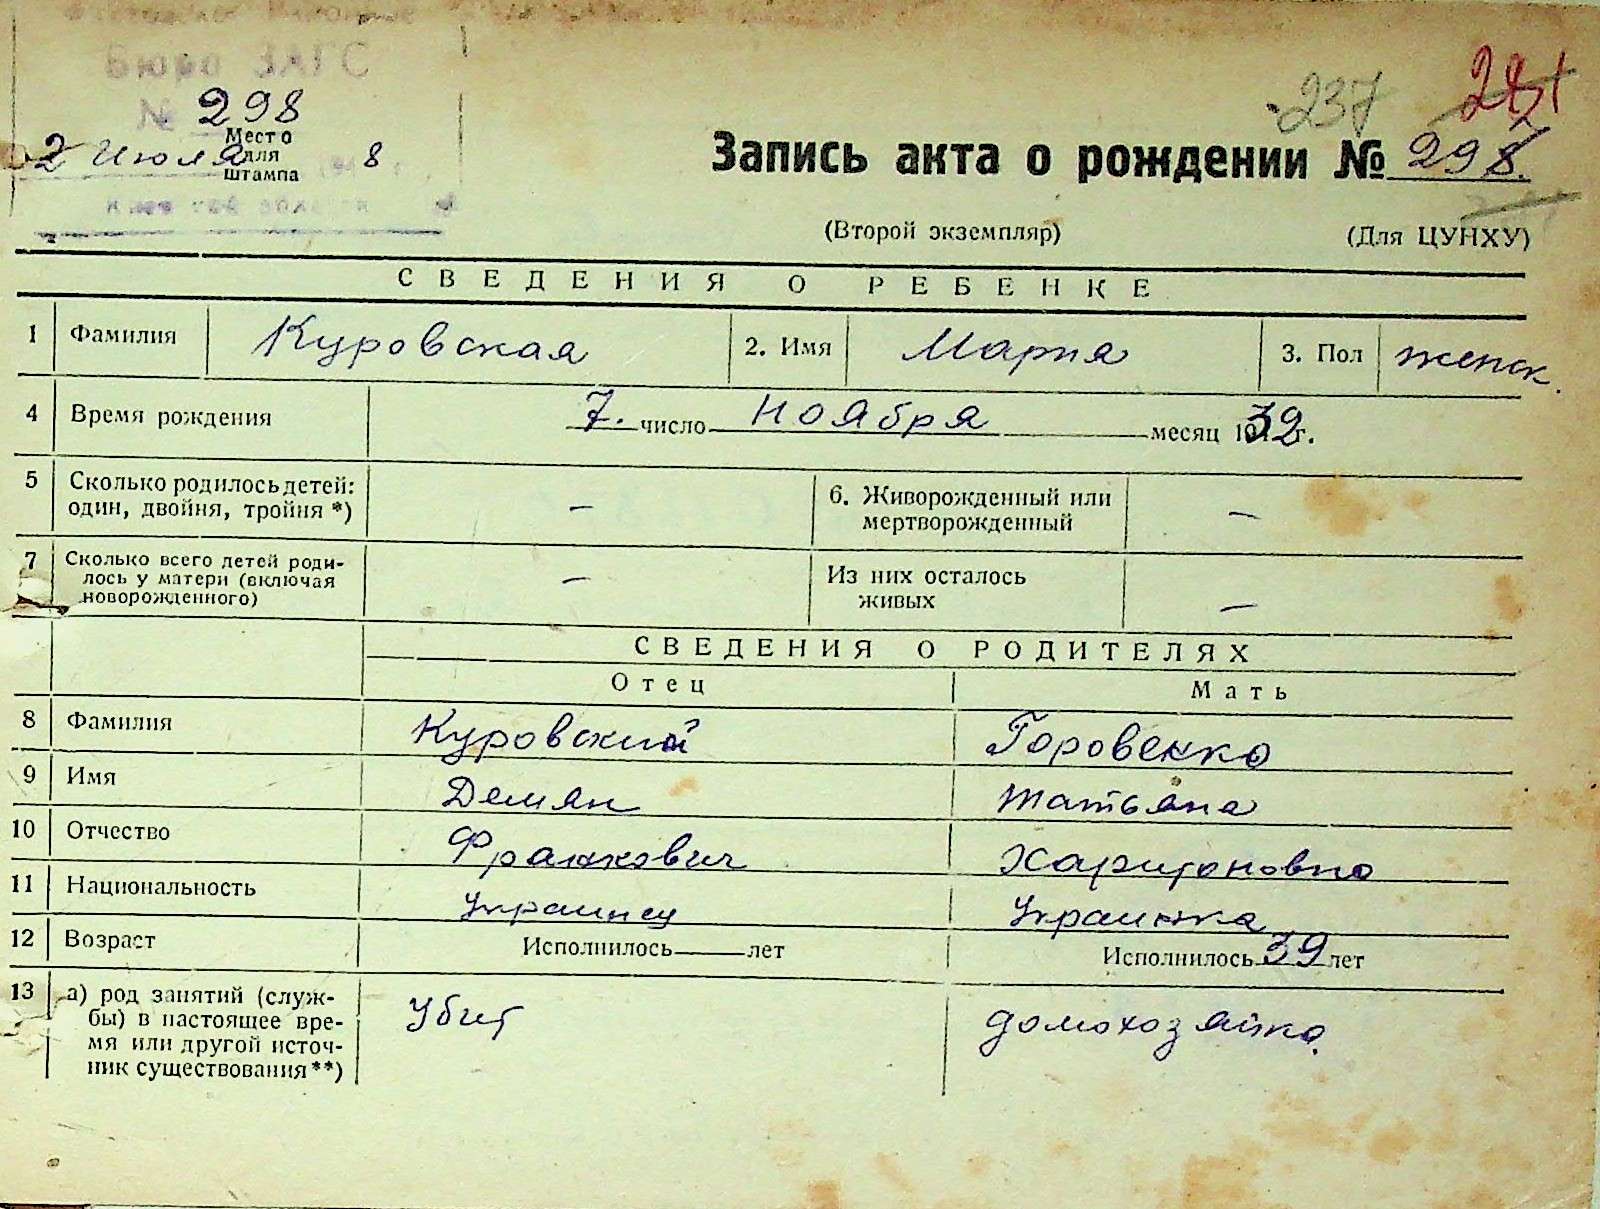 Бюро ЗАГС
№ 298
Место
для
штампа
2 Июля 194 8 г.
Киевской области
237
281
Запись акта о рождении № 298.
(Второй экземпляр) (Для ЦУНХУ)
СВЕДЕНИЯ О РЕБЕНКЕ
1 Фамилия Куровская 2. Имя Мария 3. Пол женск.
4 Время рождения 7. число ноября месяц 1939 г.
5 Сколько родилось детей:
один, двойня, тройня *) —
6. Живорожденный или
мертворожденный —
7 Сколько всего детей роди-
лось у матери (включая
новорожденного) —
Из них осталось
живых —
СВЕДЕНИЯ О РОДИТЕЛЯХ
Отец Мать
8 Фамилия Куровский Горовенко
9 Имя Демян Татьяна
10 Отчество Франкович Харитоновна
11 Национальность украинец Украинка
12 Возраст Исполнилось — лет Исполнилось 39 лет
13 а) род занятий (служ-
бы) в настоящее вре-
мя или другой источ-
ник существования **)
Убит домохозяйка.